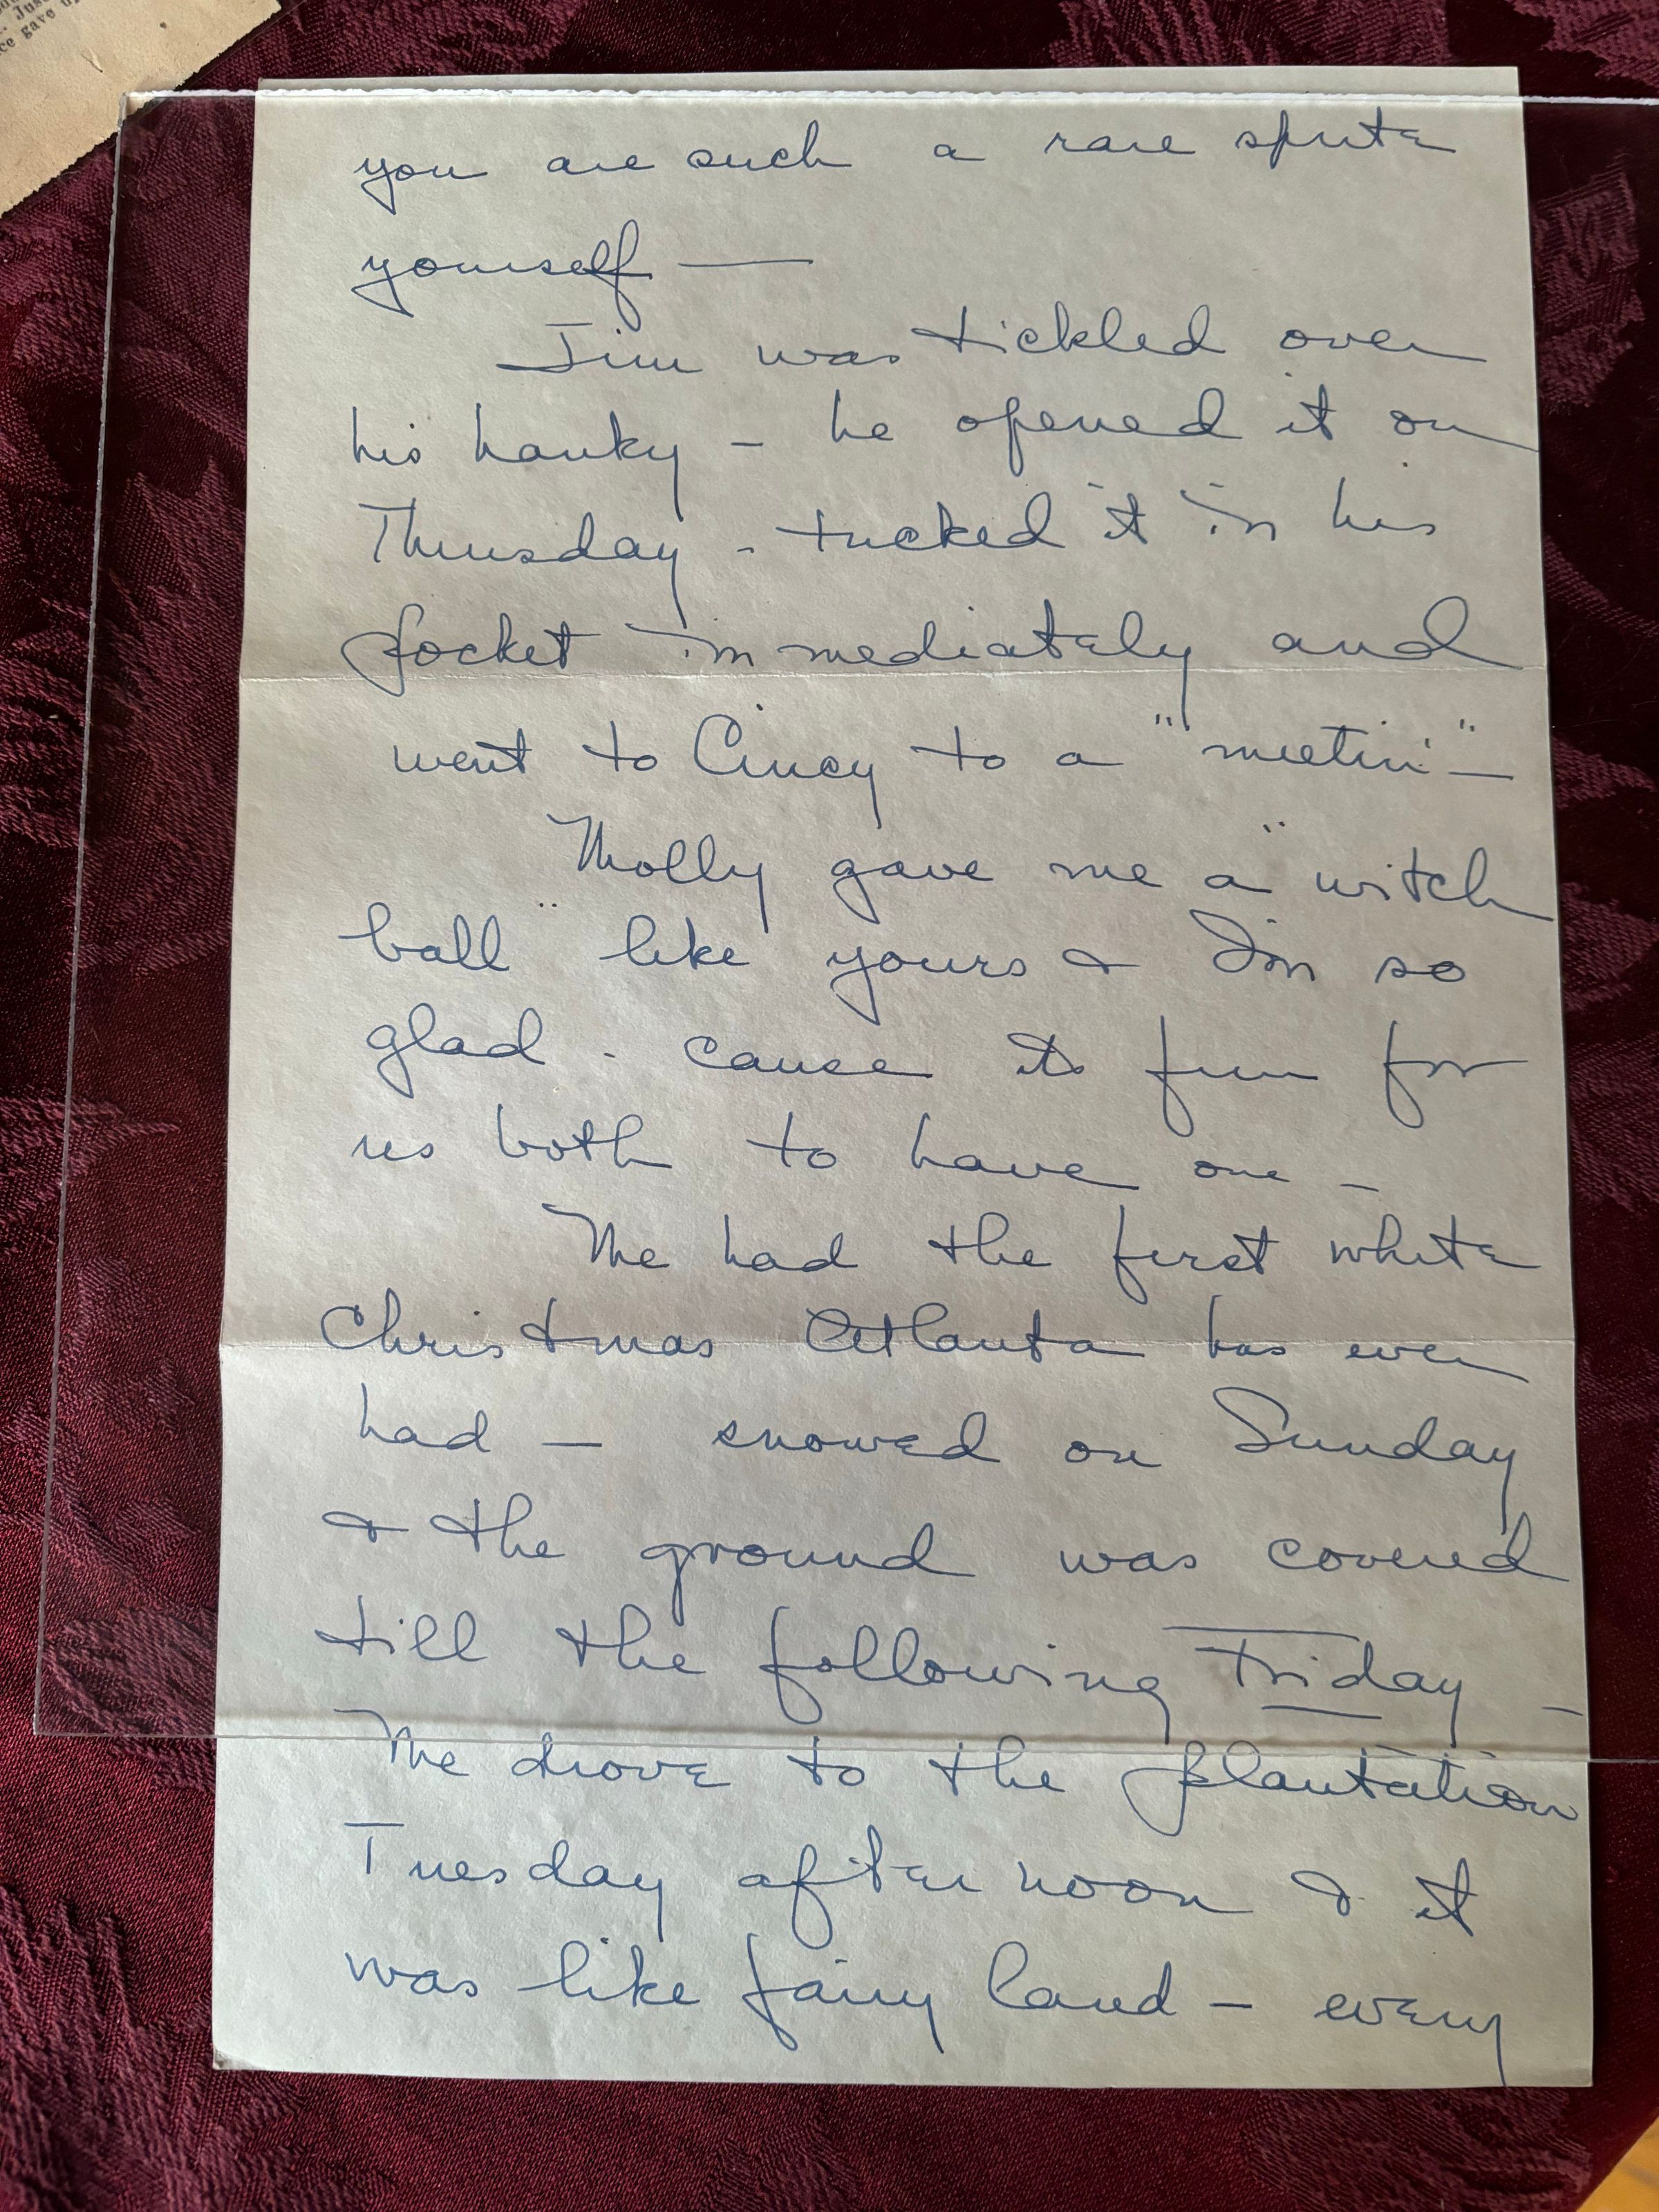 . Jus
ce gave u
you are such a rare sprite
yourself —
Jim was tickled over
his hanky - he opened it on
Thursday - tucked it in his
pocket immediately and
went to Cincy to a "meetin'" —
Molly gave me a "witch
ball" like yours & I'm so
glad - cause its fun for
us both to have one -
We had the first white
Christmas Atlanta has ever
had — snowed on Sunday
& the ground was covered
till the following Friday -
We drove to the plantation
Tuesday afternoon & it
was like fairy land - every